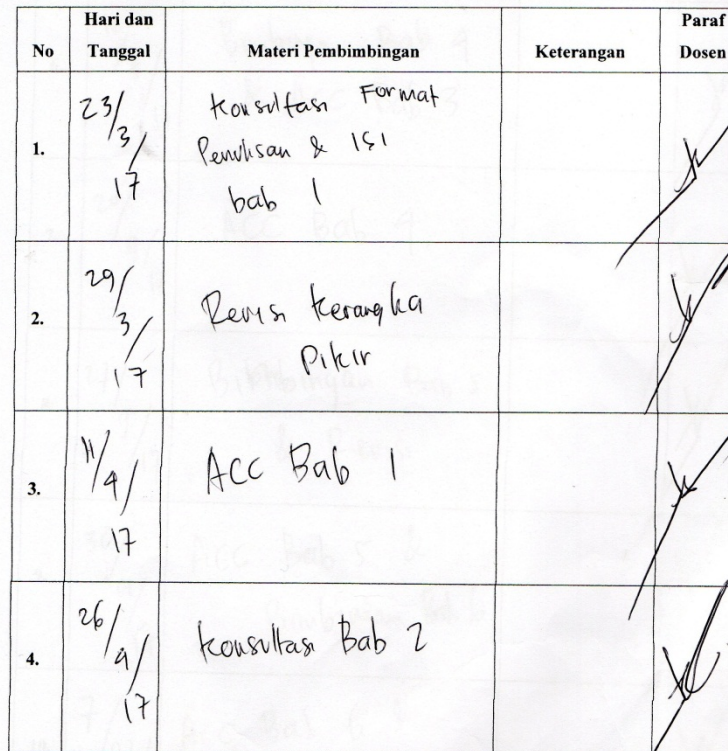 No Hari dan Tanggal Materi Pembimbingan Keterangan Paraf Dosen
1. 23/3/17 Konsultasi Format
Penulisan & Isi
bab 1
2. 29/3/17 Revisi Kerangka
Pikir
3. 11/4/17 ACC Bab 1
4. 26/4/17 Konsultasi Bab 2